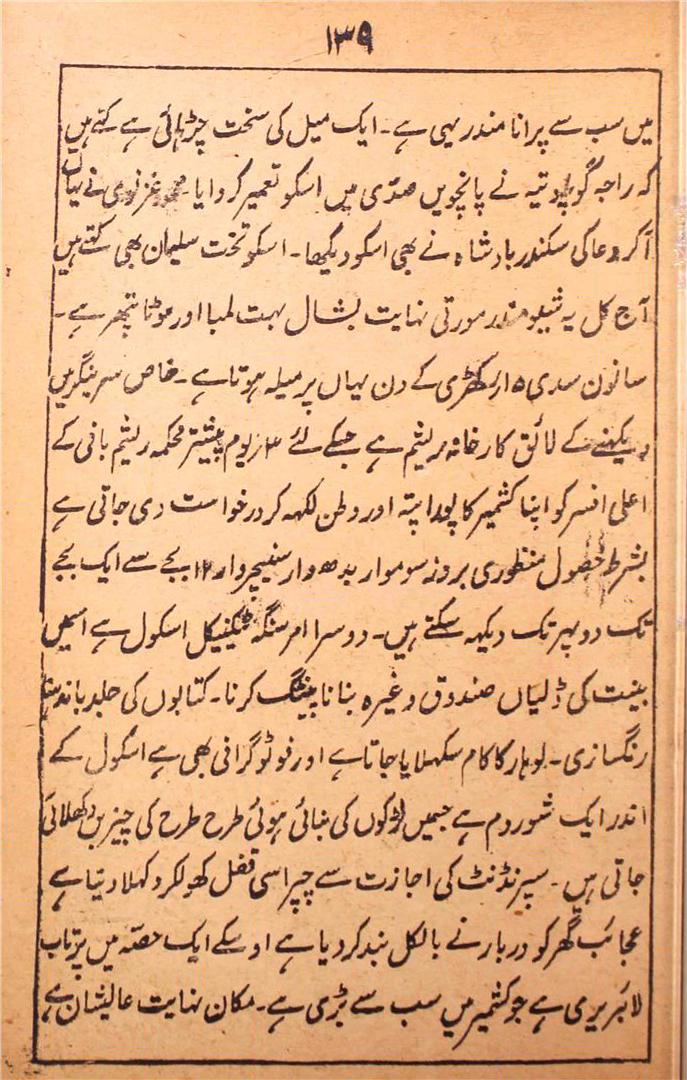 ۱۳۹
میں سب سے پرانا مندر یہی ہے۔ ایک میل کی سخت چڑہائی ہے کہتے ہیں
کہ راجہ گوپادتیہ نے پانچویں صدی میں اسکو تعمیر کروایا۔ محمود غزنوی نے یہاں
آکر دعا کی سکندر بادشاہ نے بھی اسکو دیکھا۔ اسکو تخت سلیمان بھی کہتے ہیں
آج کل یہ شیو مندر مورتی نہایت بشال بہت لمبا اور موٹا پتھر ہے۔
سانون سدی ۱۵ رکھڑی کے دن یہاں پر میلہ ہوتا ہے۔ خاص سرینگر میں
دیکہنے کے لائق کارخانہ ریشم ہے جسکے لئے یوم پیشتر محکمہ ریشم بانی کے
اعلی افسر کو اپنا کشمیر کا پورا پتہ اور وطن لکہہ کر درخواست دی جاتی ہے
بشرط حصول منظوری بروز سوموار بدھ وار سنیچروار ۱۲ بجے سے ایک بجے
تک دوپہر تک دیکہہ سکتے ہیں۔ دوسرا امرسنگہ ٹیکنیکل اسکول ہے اسمیں
بینت کی ڈلیاں صندوق وغیرہ بنانا پینٹنگ کرنا۔ کتابوں کی جلد باندہنا
رنگسازی۔ لوہار کا کام سکہلایا جاتا ہے اور فوٹوگرافی بھی ہے اسکول کے
اندر ایک شوروم ہے جسمیں لڑکوں کی بنائی ہوئی طرح طرح کی چیزیں دکھلائی
جاتی ہیں۔ سپرنڈنٹ کی اجازت سے چپراسی قفل کھولکر دکہلا دیتا ہے
عجائب گھر کو دربار نے بالکل بند کر دیا ہے اوسکے ایک حصہ میں پرتاب
لائبریری ہے جو کشمیر میں سب سے بڑی ہے۔ مکان نہایت عالیشان ہے